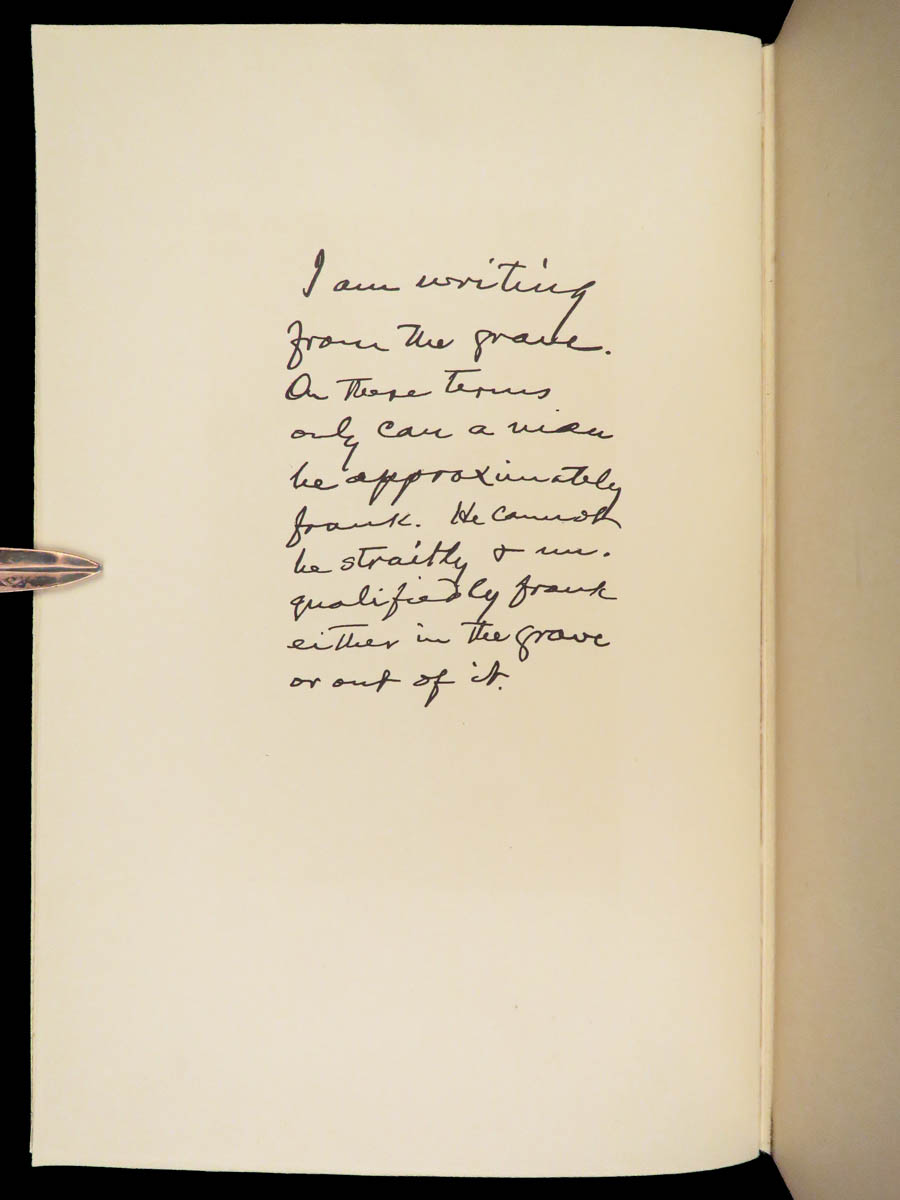 I am writing
from the grave.
On these terms
only can a man
be approximately
frank. He cannot
be straitly & un-
qualifiedly frank
either in the grave
or out of it.